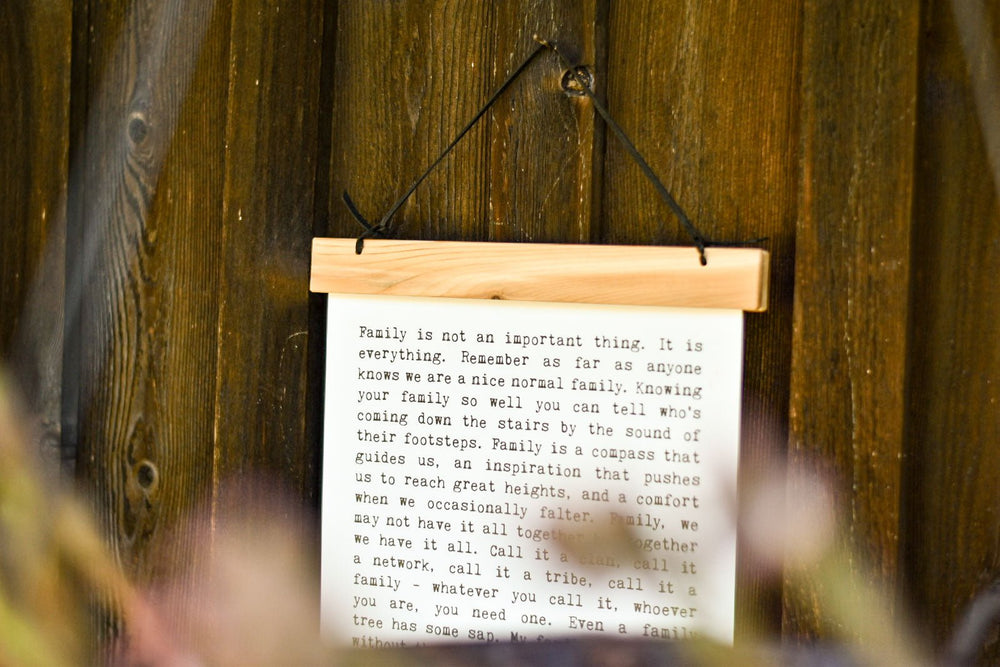 Family is not an important thing. It is
everything. Remember as far as anyone
knows we are a nice normal family. Knowing
your family so well you can tell who's
coming down the stairs by the sound of
their footsteps. Family is a compass that
guides us, an inspiration that pushes
us to reach great heights, and a comfort
when we occasionally falter. Family, we
may not have it all together together
we have it all. Call it a clan, call it
a network, call it a tribe, call it a
family - whatever you call it, whoever
you are, you need one. Even a family
tree has some sap. My
without